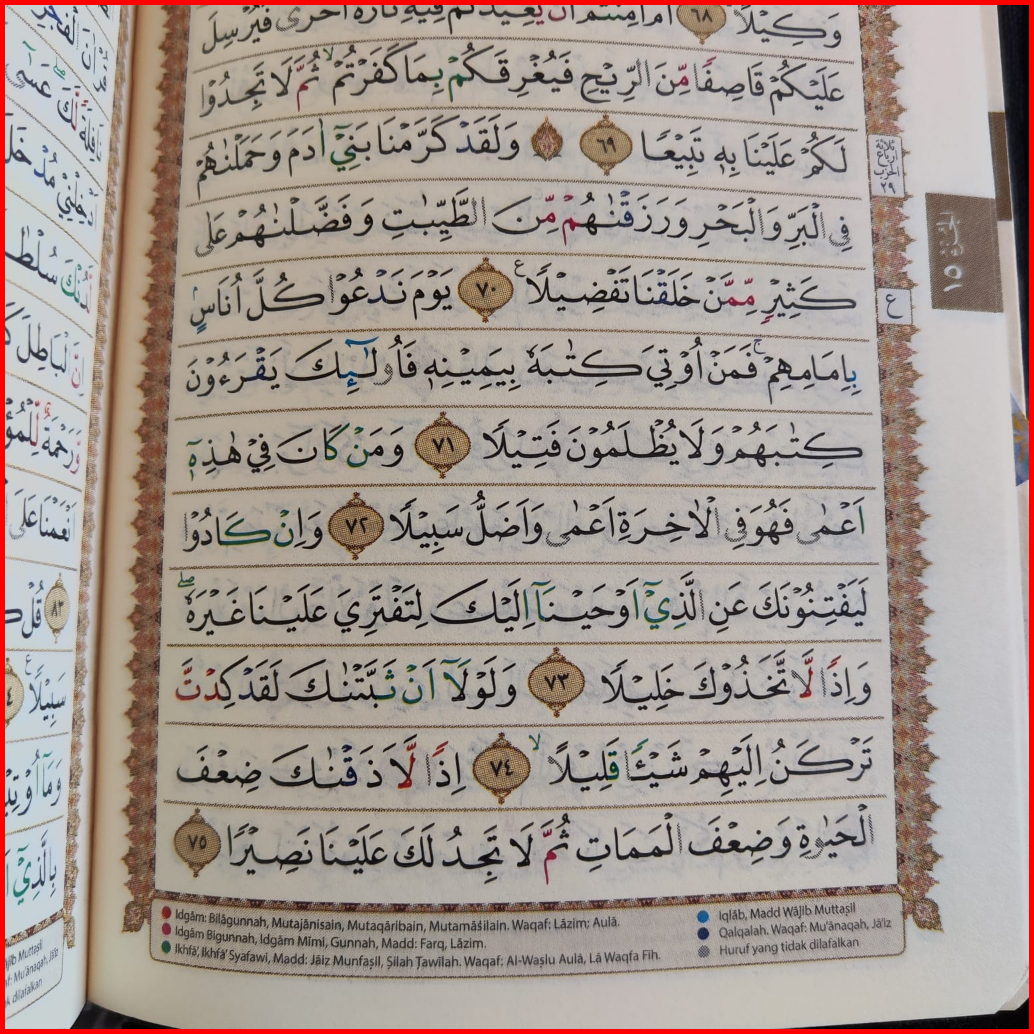 وَكِيْلًا ۙ ٦٨ اَمْ اَمِنْتُمْ اَنْ يُّعِيْدَكُمْ فِيْهِ تَارَةً اُخْرٰى فَيُرْسِلَ
عَلَيْكُمْ قَاصِفًا مِّنَ الرِّيْحِ فَيُغْرِقَكُمْ بِمَا كَفَرْتُمْ ۙ ثُمَّ لَا تَجِدُوْا
لَكُمْ عَلَيْنَا بِهٖ تَبِيْعًا ٦٩ ۞ وَلَقَدْ كَرَّمْنَا بَنِيْٓ اٰدَمَ وَحَمَلْنٰهُمْ
فِى الْبَرِّ وَالْبَحْرِ وَرَزَقْنٰهُمْ مِّنَ الطَّيِّبٰتِ وَفَضَّلْنٰهُمْ عَلٰى
كَثِيْرٍ مِّمَّنْ خَلَقْنَا تَفْضِيْلًا ࣖ ٧٠ يَوْمَ نَدْعُوْا كُلَّ اُنَاسٍۢ
بِاِمَامِهِمْ ۚ فَمَنْ اُوْتِيَ كِتٰبَهٗ بِيَمِيْنِهٖ فَاُولٰۤىِٕكَ يَقْرَءُوْنَ
كِتٰبَهُمْ وَلَا يُظْلَمُوْنَ فَتِيْلًا ٧١ وَمَنْ كَانَ فِيْ هٰذِهٖٓ
اَعْمٰى فَهُوَ فِى الْاٰخِرَةِ اَعْمٰى وَاَضَلُّ سَبِيْلًا ٧٢ وَاِنْ كَادُوْا
لَيَفْتِنُوْنَكَ عَنِ الَّذِيْٓ اَوْحَيْنَآ اِلَيْكَ لِتَفْتَرِيَ عَلَيْنَا غَيْرَهٗ ۖ
وَاِذًا لَّاتَّخَذُوْكَ خَلِيْلًا ٧٣ وَلَوْلَآ اَنْ ثَبَّتْنٰكَ لَقَدْ كِدْتَّ
تَرْكَنُ اِلَيْهِمْ شَيْـًٔا قَلِيْلًا ۙ ٧٤ اِذًا لَّاَذَقْنٰكَ ضِعْفَ
الْحَيٰوةِ وَضِعْفَ الْمَمَاتِ ثُمَّ لَا تَجِدُ لَكَ عَلَيْنَا نَصِيْرًا ٧٥
ثلاثة ارباع الحزب ٢٩
ع
الجزء ١٥
Idgām: Bilāgunnah, Mutajānisain, Mutaqāribain, Mutamāṡilain. Waqaf: Lāzim; Aulā.
Idgām Bigunnah, Idgām Mīmī, Gunnah, Madd: Farq, Lāzim.
Ikhfā', Ikhfā' Syafawi, Madd: Jāiz Munfaṣil, Ṣilah Ṭawīlah. Waqaf: Al-Waṣlu Aulā, Lā Waqfa Fīh.
Iqlāb, Madd Wājib Muttaṣil
Qalqalah. Waqaf: Mu'ānaqah, Jā'iz
Huruf yang tidak dilafalkan